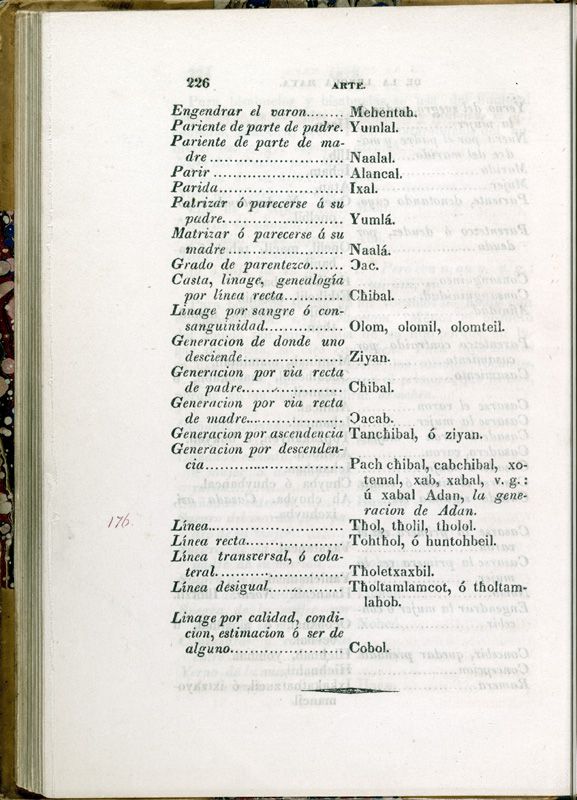 226 ARTE.
Engendrar el varon........ Mehentah.
Pariente de parte de padre. Yumlal.
Pariente de parte de ma-
dre ........................... Naalal.
Parir ........................... Alancal.
Parida......................... Ixal.
Patrizar ó parecerse á su
padre........................ Yumlá.
Matrizar ó parecerse á su
madre ....................... Naalá.
Grado de parentezco....... Ɔac.
Casta, linage, genealogía
por línea recta............ Chibal.
Linage por sangre ó con-
sanguinidad............... Olom, olomil, olomteil.
Generacion de donde uno
desciende................... Ziyan.
Generacion por via recta
de padre.................... Chibal.
Generacion por via recta
de madre................... Ɔacab.
Generacion por ascendencia Tanchibal, ó ziyan.
Generacion por descenden-
cia........................... Pach chibal, cabchibal, xo-
temal, xab, xabal, v. g.:
ú xabal Adan, la gene-
racion de Adan.
176
Línea........................... Thol, tholil, tholol.
Línea recta................... Tohthol, ó huntohbeil.
Línea transversal, ó cola-
teral.......................... Tholetxaxbil.
Línea desigual............... Tholtamlamcot, ó tholtam-
lahob.
Linage por calidad, condi-
cion, estimacion ó ser de
alguno....................... Cobol.